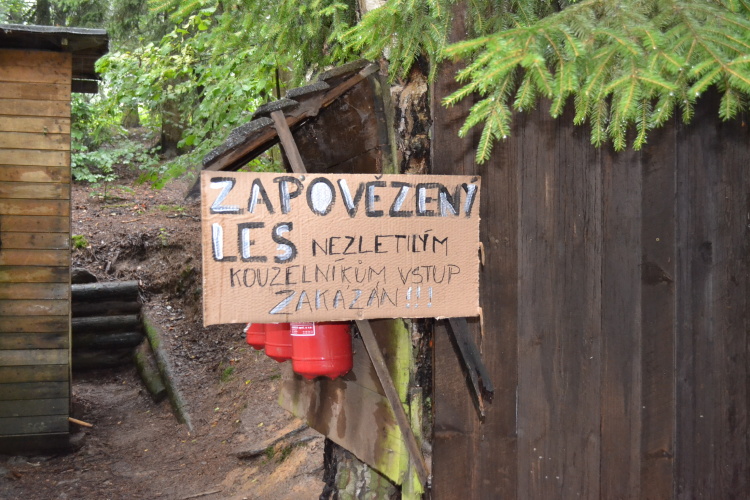 ZAPOVĚZENÝ
LES NEZLETILÝM
KOUZELNÍKŮM VSTUP
ZAKÁZÁN!!!